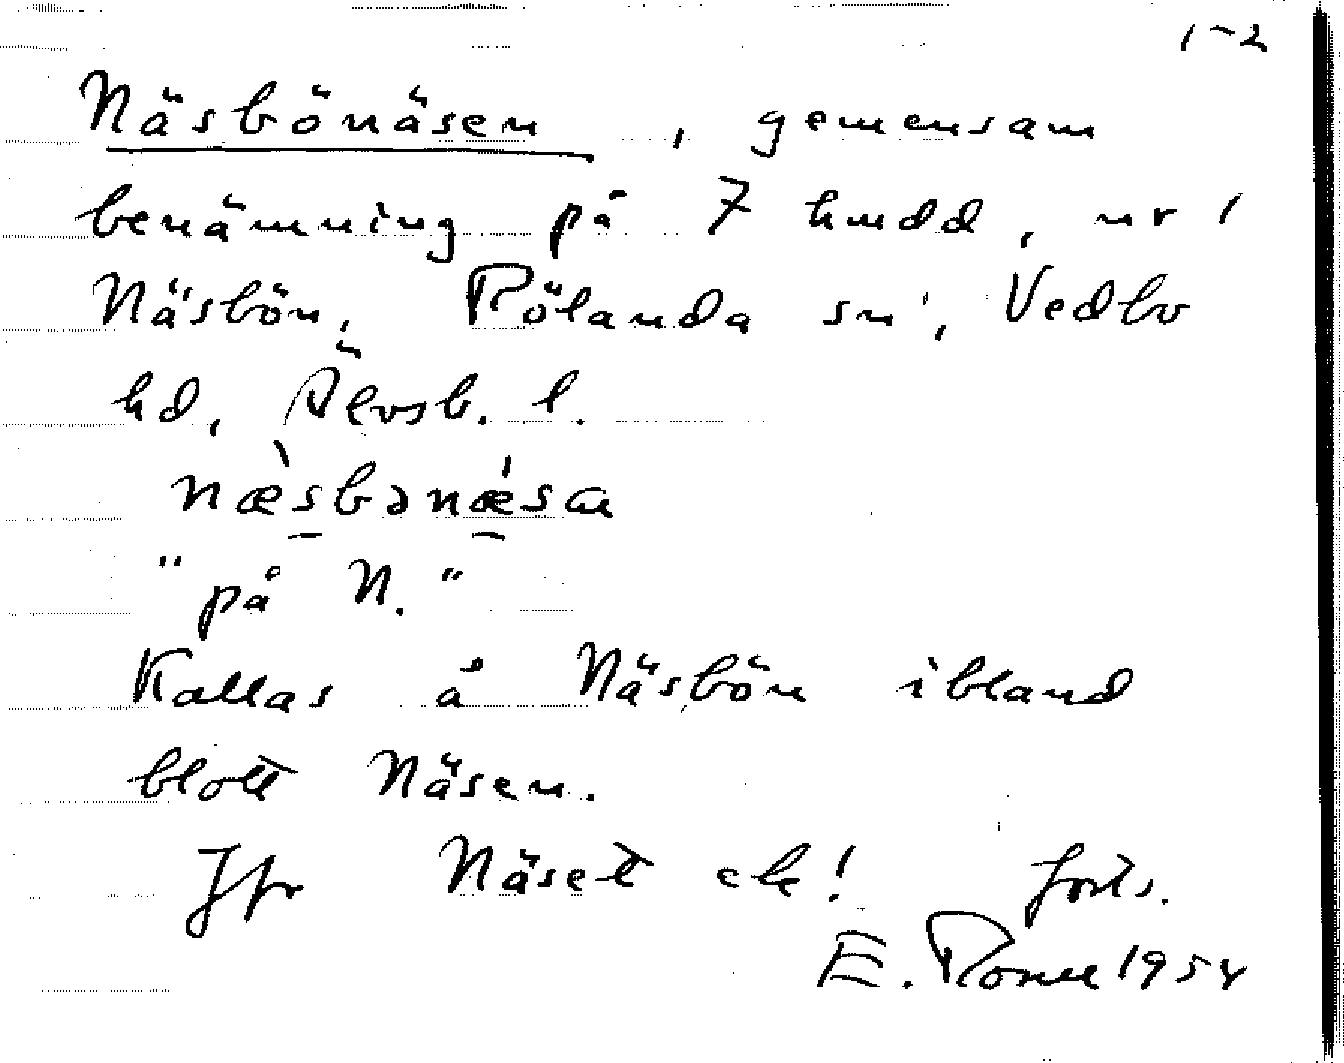 1-2
Näsbönäsen, gemensam
benämning på 7 hmdd, nr 1
Näsbön, Rölanda sn, Vedbo
hd, Älvsb. l.
næ̀sbənǽsa
"på N."
Kallas å Näsbön ibland
blott Näsen.
Jfr Näset ek! forts.
E. 1954